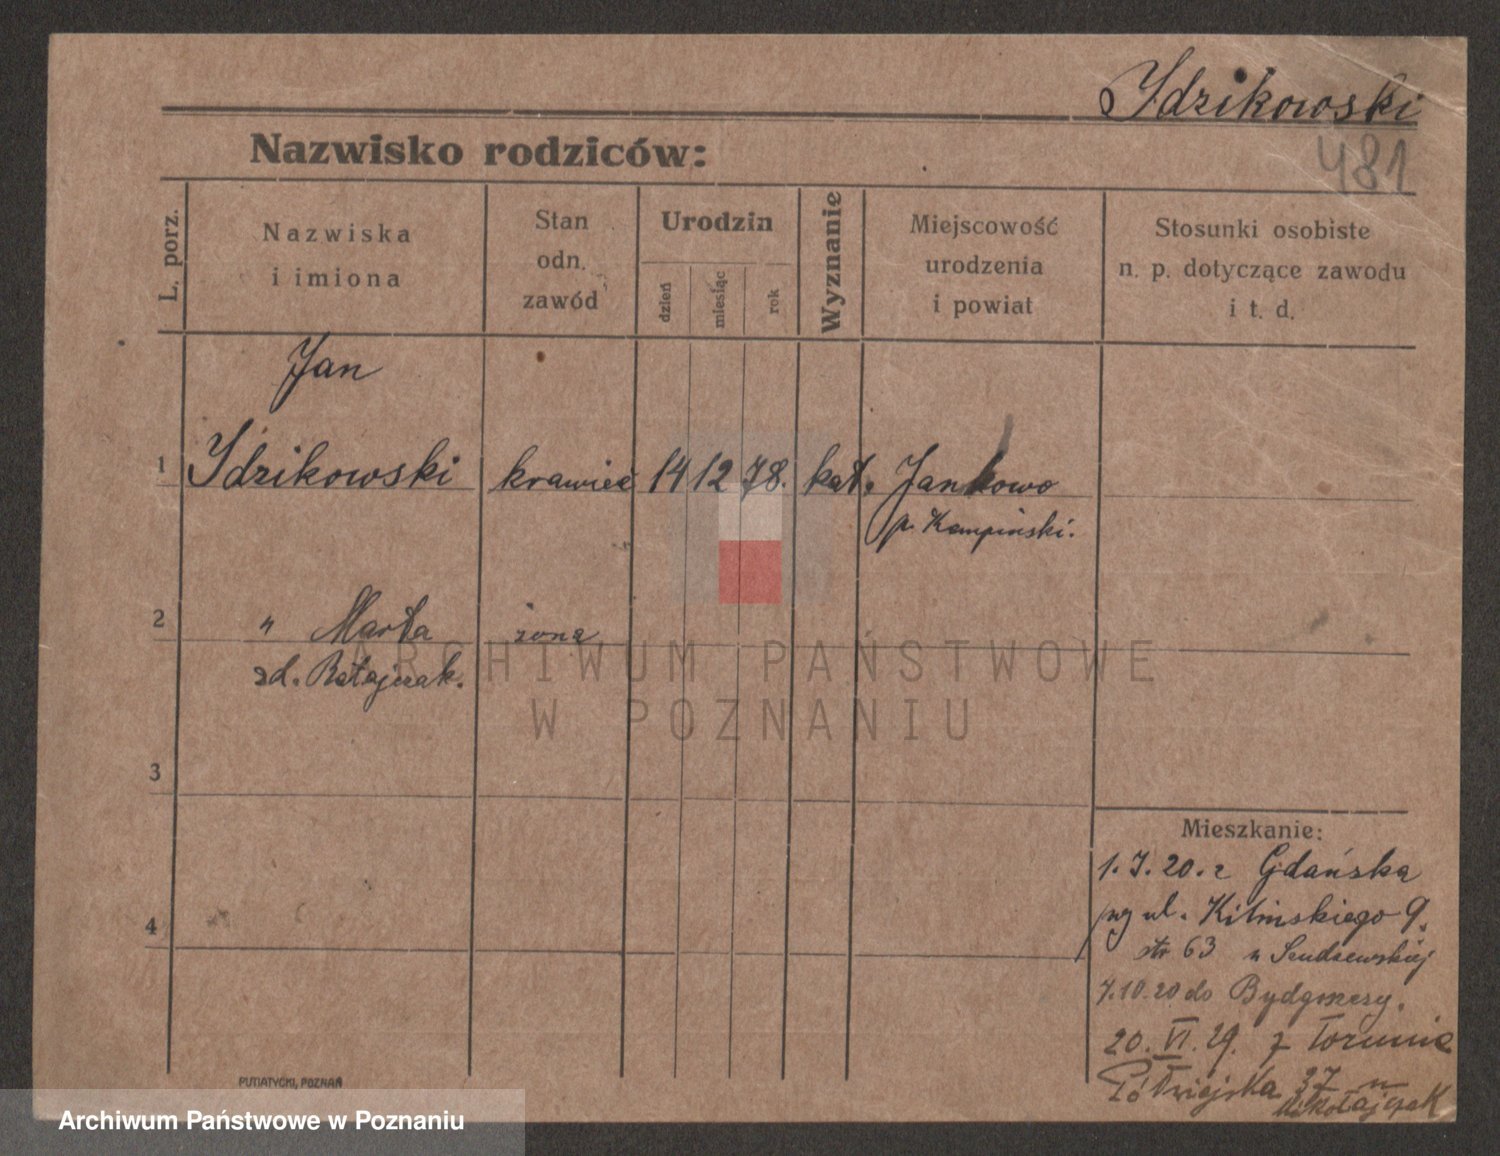 Idzikowski
481
Nazwisko rodziców:
L. porz.
Nazwiska
i imiona
Stan
odn.
zawód
Urodzin
dzień
miesiąc
rok
Wyznanie
Miejscowość
urodzenia
i powiat
Stosunki osobiste
n. p. dotyczące zawodu
i t. d.
Jan
1 Idzikowski krawiec 14 12 78. kat. Jankowo
p. Kempiński.
2 " Marta żona
zd. Ratajczak.
ARCHIWUM PAŃSTWOWE
W POZNANIU
3
4
Mieszkanie:
1.7.20. z Gdańska
ul. Kilińskiego 9.
str 63 u Szudzewskiej
7.10.20 do Bydgoszczy.
20. VI. 29. z Torunia
Półwiejska 37 u
Mikołajczak
PUTIATYCKI, POZNAŃ
Archiwum Państwowe w Poznaniu